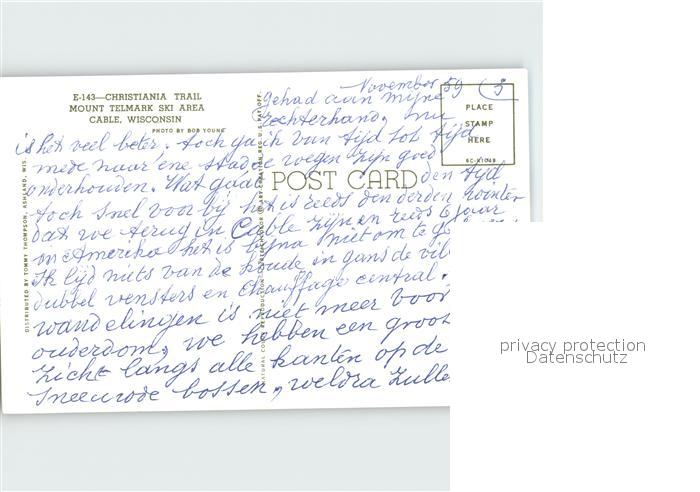 E-143—CHRISTIANIA TRAIL
MOUNT TELMARK SKI AREA
CABLE, WISCONSIN
PHOTO BY BOB YOUNG
PLACE
STAMP
HERE
6C-K1048
POST CARD
DISTRIBUTED BY TOMMY THOMPSON, ASHLAND, WIS.
November 59 (3
gehad aan mijne
rechterhand, nu
is het veel beter. toch ga ik van tijd tot tijd
mede naar ene stad de wegen zijn goed
onderhouden. Wat gaat den tijd
toch snel voorbij het is reeds den derden winter
dat we terug in Cable zijn en reeds 6 jaar
in Amerika het is bijna niet om te ge
Ik lijd niets van de koude in gans de vil
dubbel vensters en chauffage central.
wandelingen is niet meer voor
ouderdom, we hebben een groot
zicht langs alle kanten op de
bossen, weldra zulle
privacy protection
Datenschutz